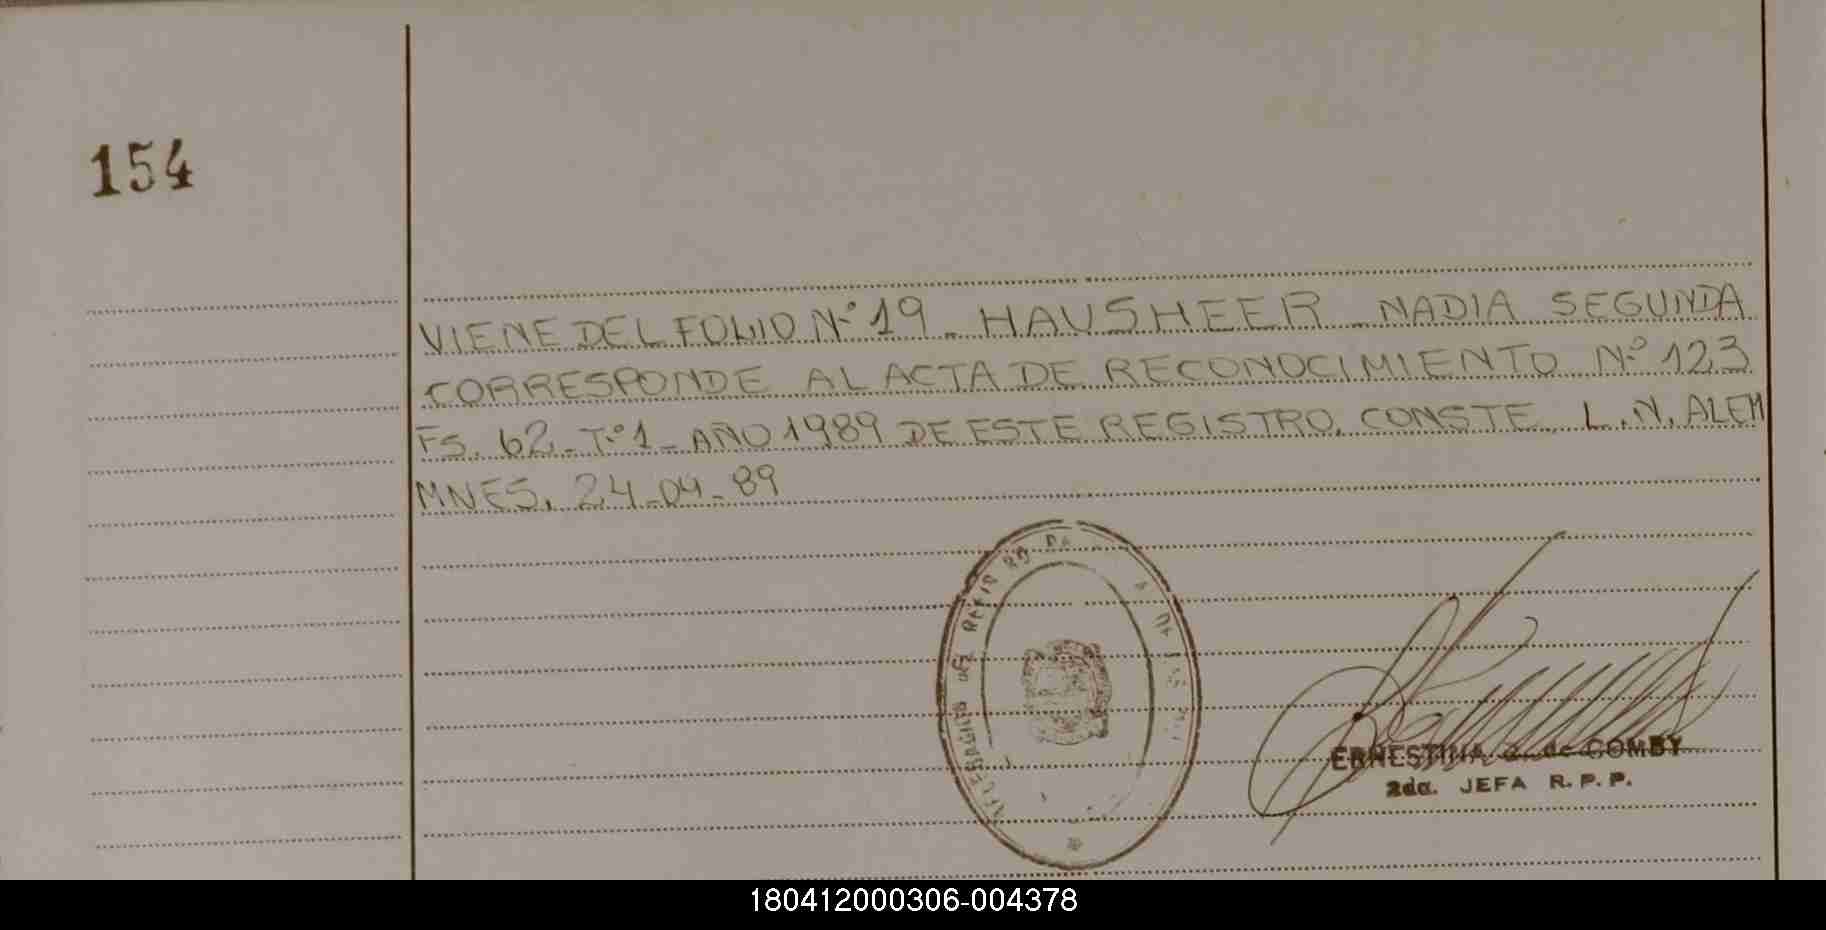 154
VIENE DEL FOLIO Nº 19_ HAUSHEER _ NADIA SEGUNDA
CORRESPONDE AL ACTA DE RECONOCIMIENTO Nº 123
FS. 62_ Tº 1_ AÑO 1989 DE ESTE REGISTRO. CONSTE. L.N. ALEM
MNES. 24_04_89
ERNESTINA de COMBY
2da. JEFA R.P.P.
180412000306-004378